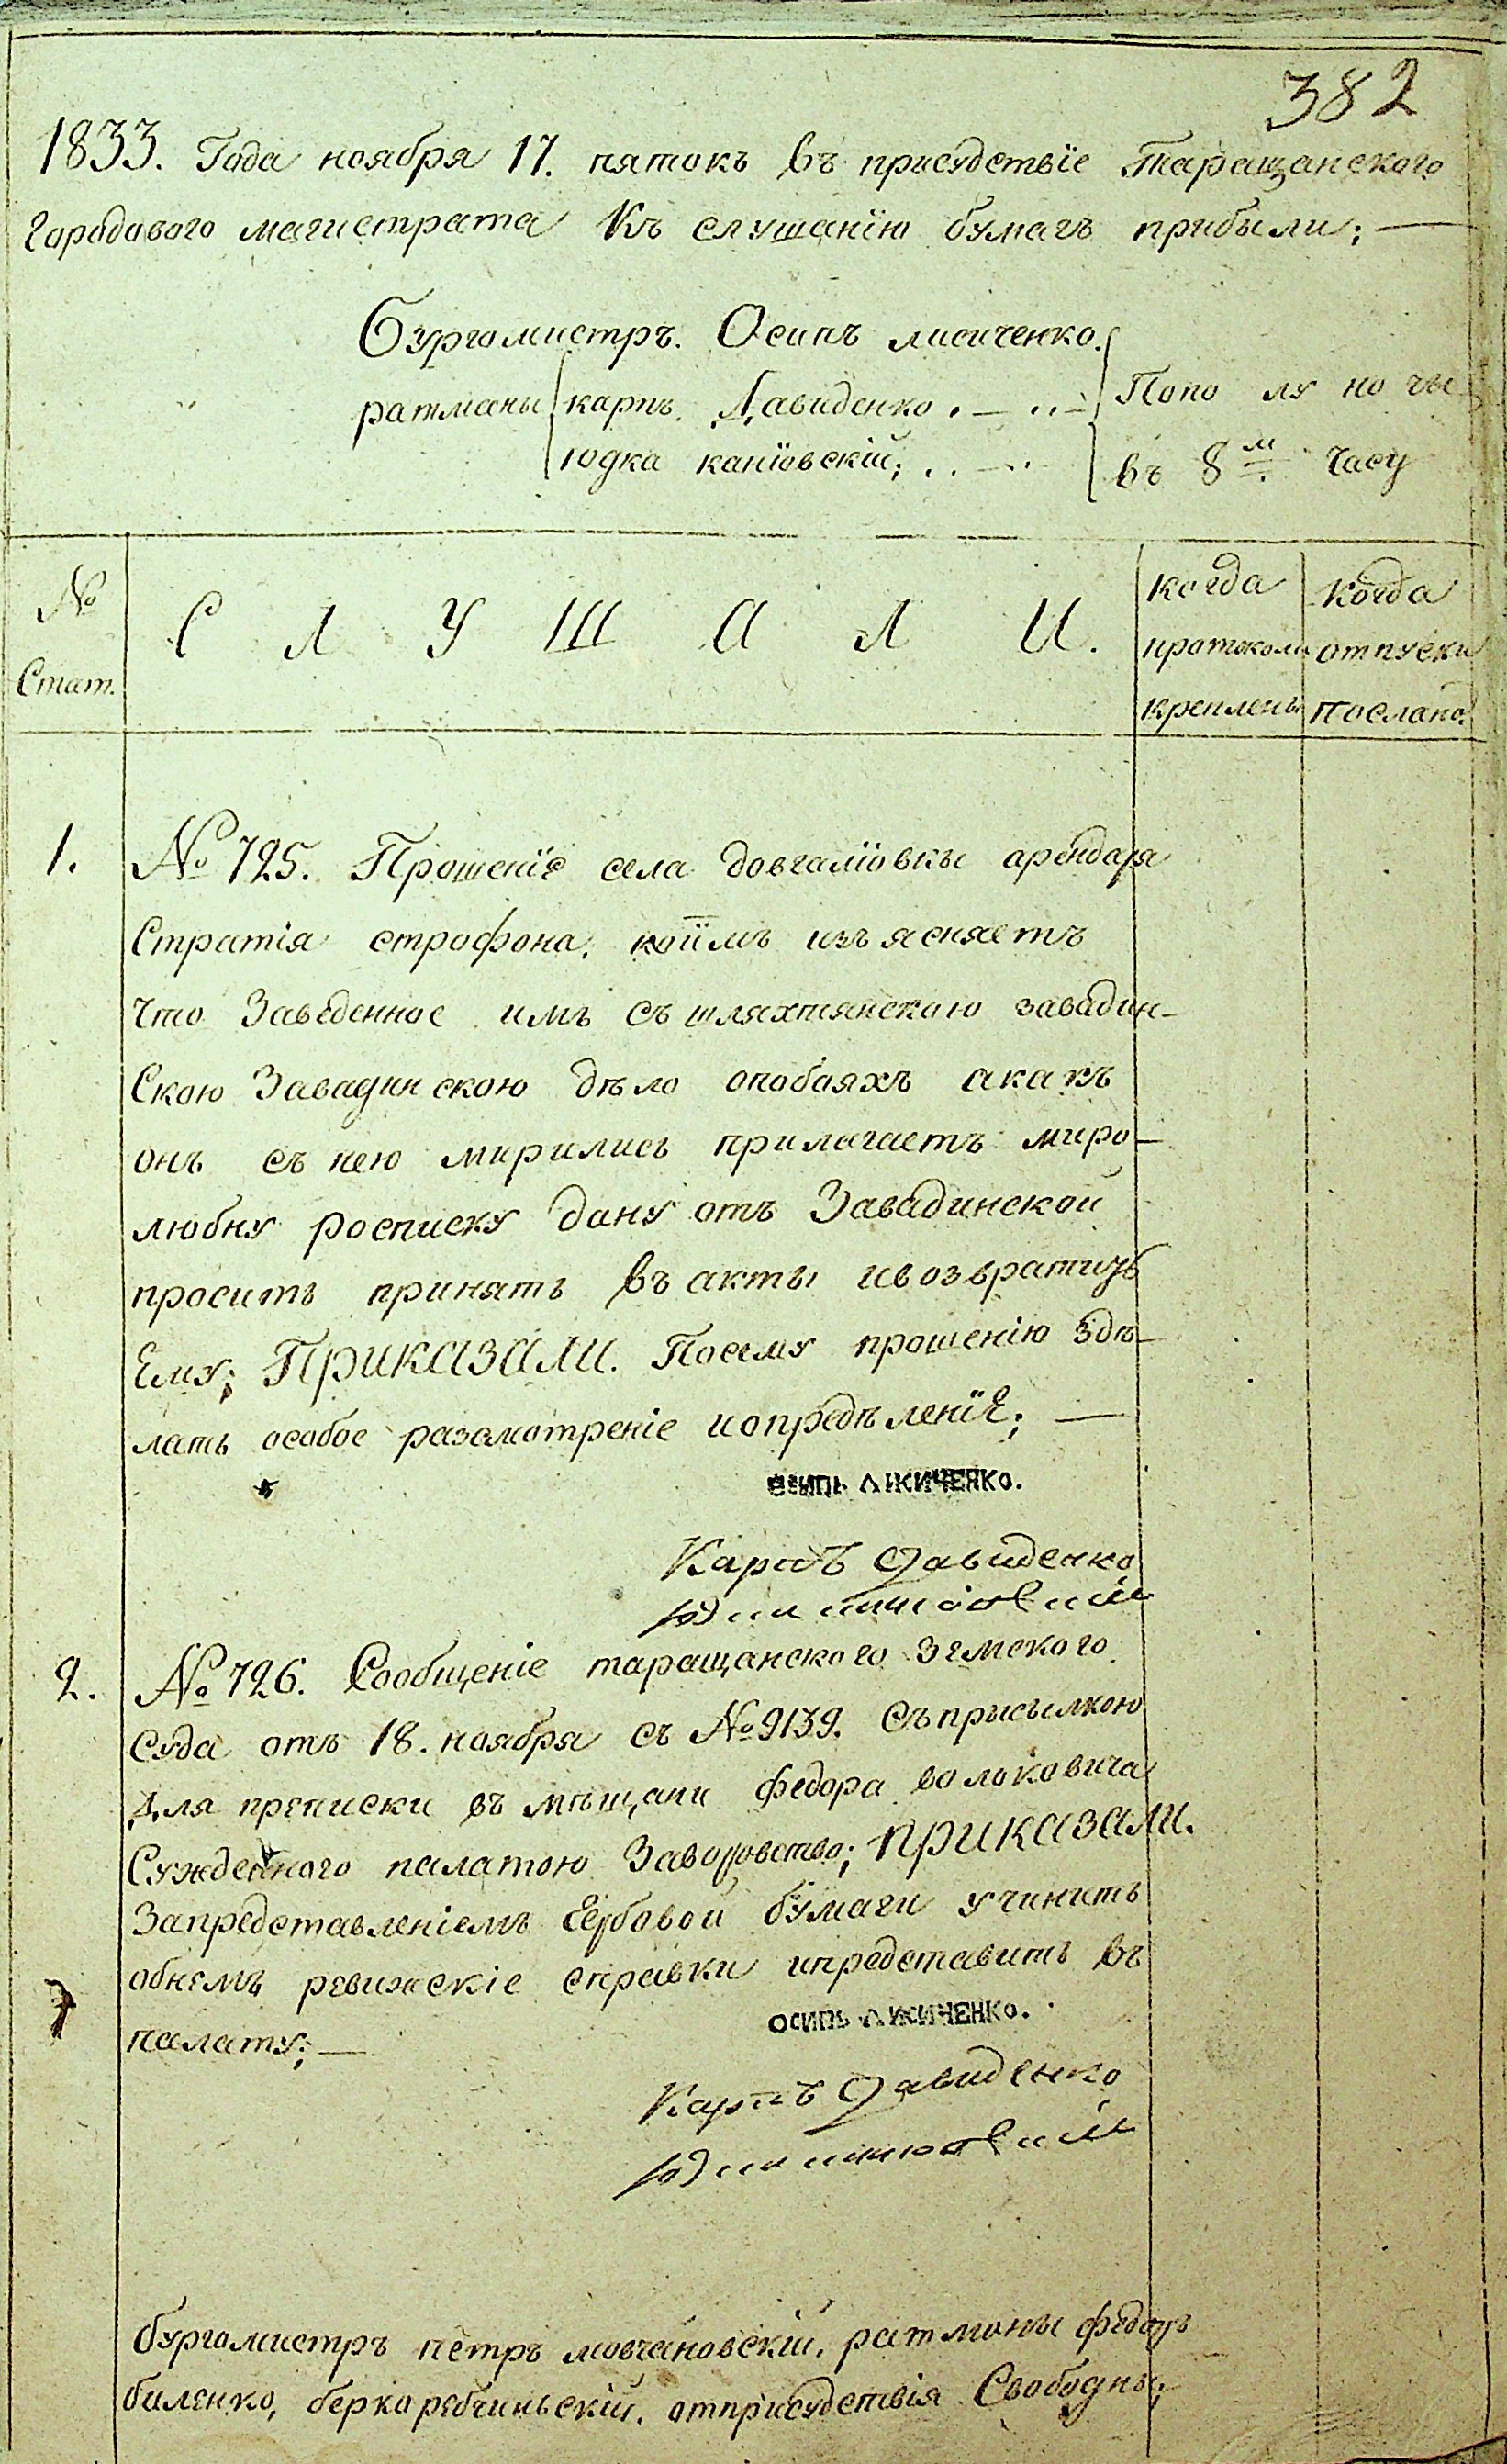 382
1833. Года ноября 17. пятокъ въ присудствїе Таращанского
Городового магистрата Къ слушанїю бумагъ прибыли; —
Бургомистръ. Осипъ лисиченко.
ратманы карпъ Давиденко . — .. — Попо лу но чы
юдка канїовскїй; .. — .. въ 8м Часу
№ С Л У Ш А Л И. когда когда
протоколи отпуски
Стат. креплены послано.
1. № 725. Прошенїе села довгалїовкы арендаря
Стратія строфона, коїмъ изъясняетъ
что Заведенное имъ съ шляхтянскою завадин-
Скою Завадинскою дѣло опобояхъ акакъ
онъ съ нею мирились прилагаетъ миро-
любну росписку дану отъ Завадинской
просить принять въ акты ивозвратить
Ему; Приказали. Посему прошенію здѣ-
лать особое разсмотреніе иопредѣленїЕ; —
осипъ лисиченко.
Карпъ Давиденко
2. № 726. Сообщеніе таращанского земского
Суда отъ 18. ноября съ № 9139. Съприсылкою
Для преписки въ мѣщани федора волоковича
Сужденного палатою Заворовство; Приказали.
Запредставленіемъ Гербовой бумаги учинить
обнемъ ревижскіе справки ипредставить въ
палату; —
осипъ лисиченко.
Карпъ Давиденко
бургомистръ петръ мовчановскїй, ратманы федоръ
биленко, берко рабчиньскїй, отприсудствія Свободны;